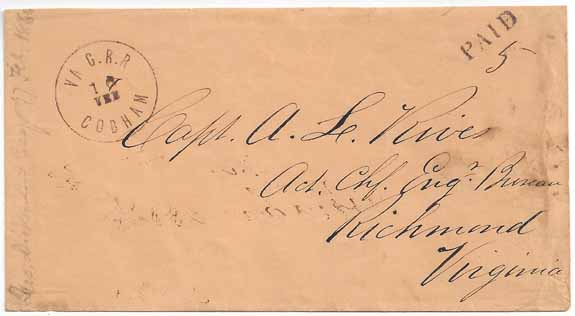 VA C. R. R
17
COBHAM
PAID
5
Capt. A. L. Rives
Act. Chf. Eng.r Bureau
Richmond
Virginia